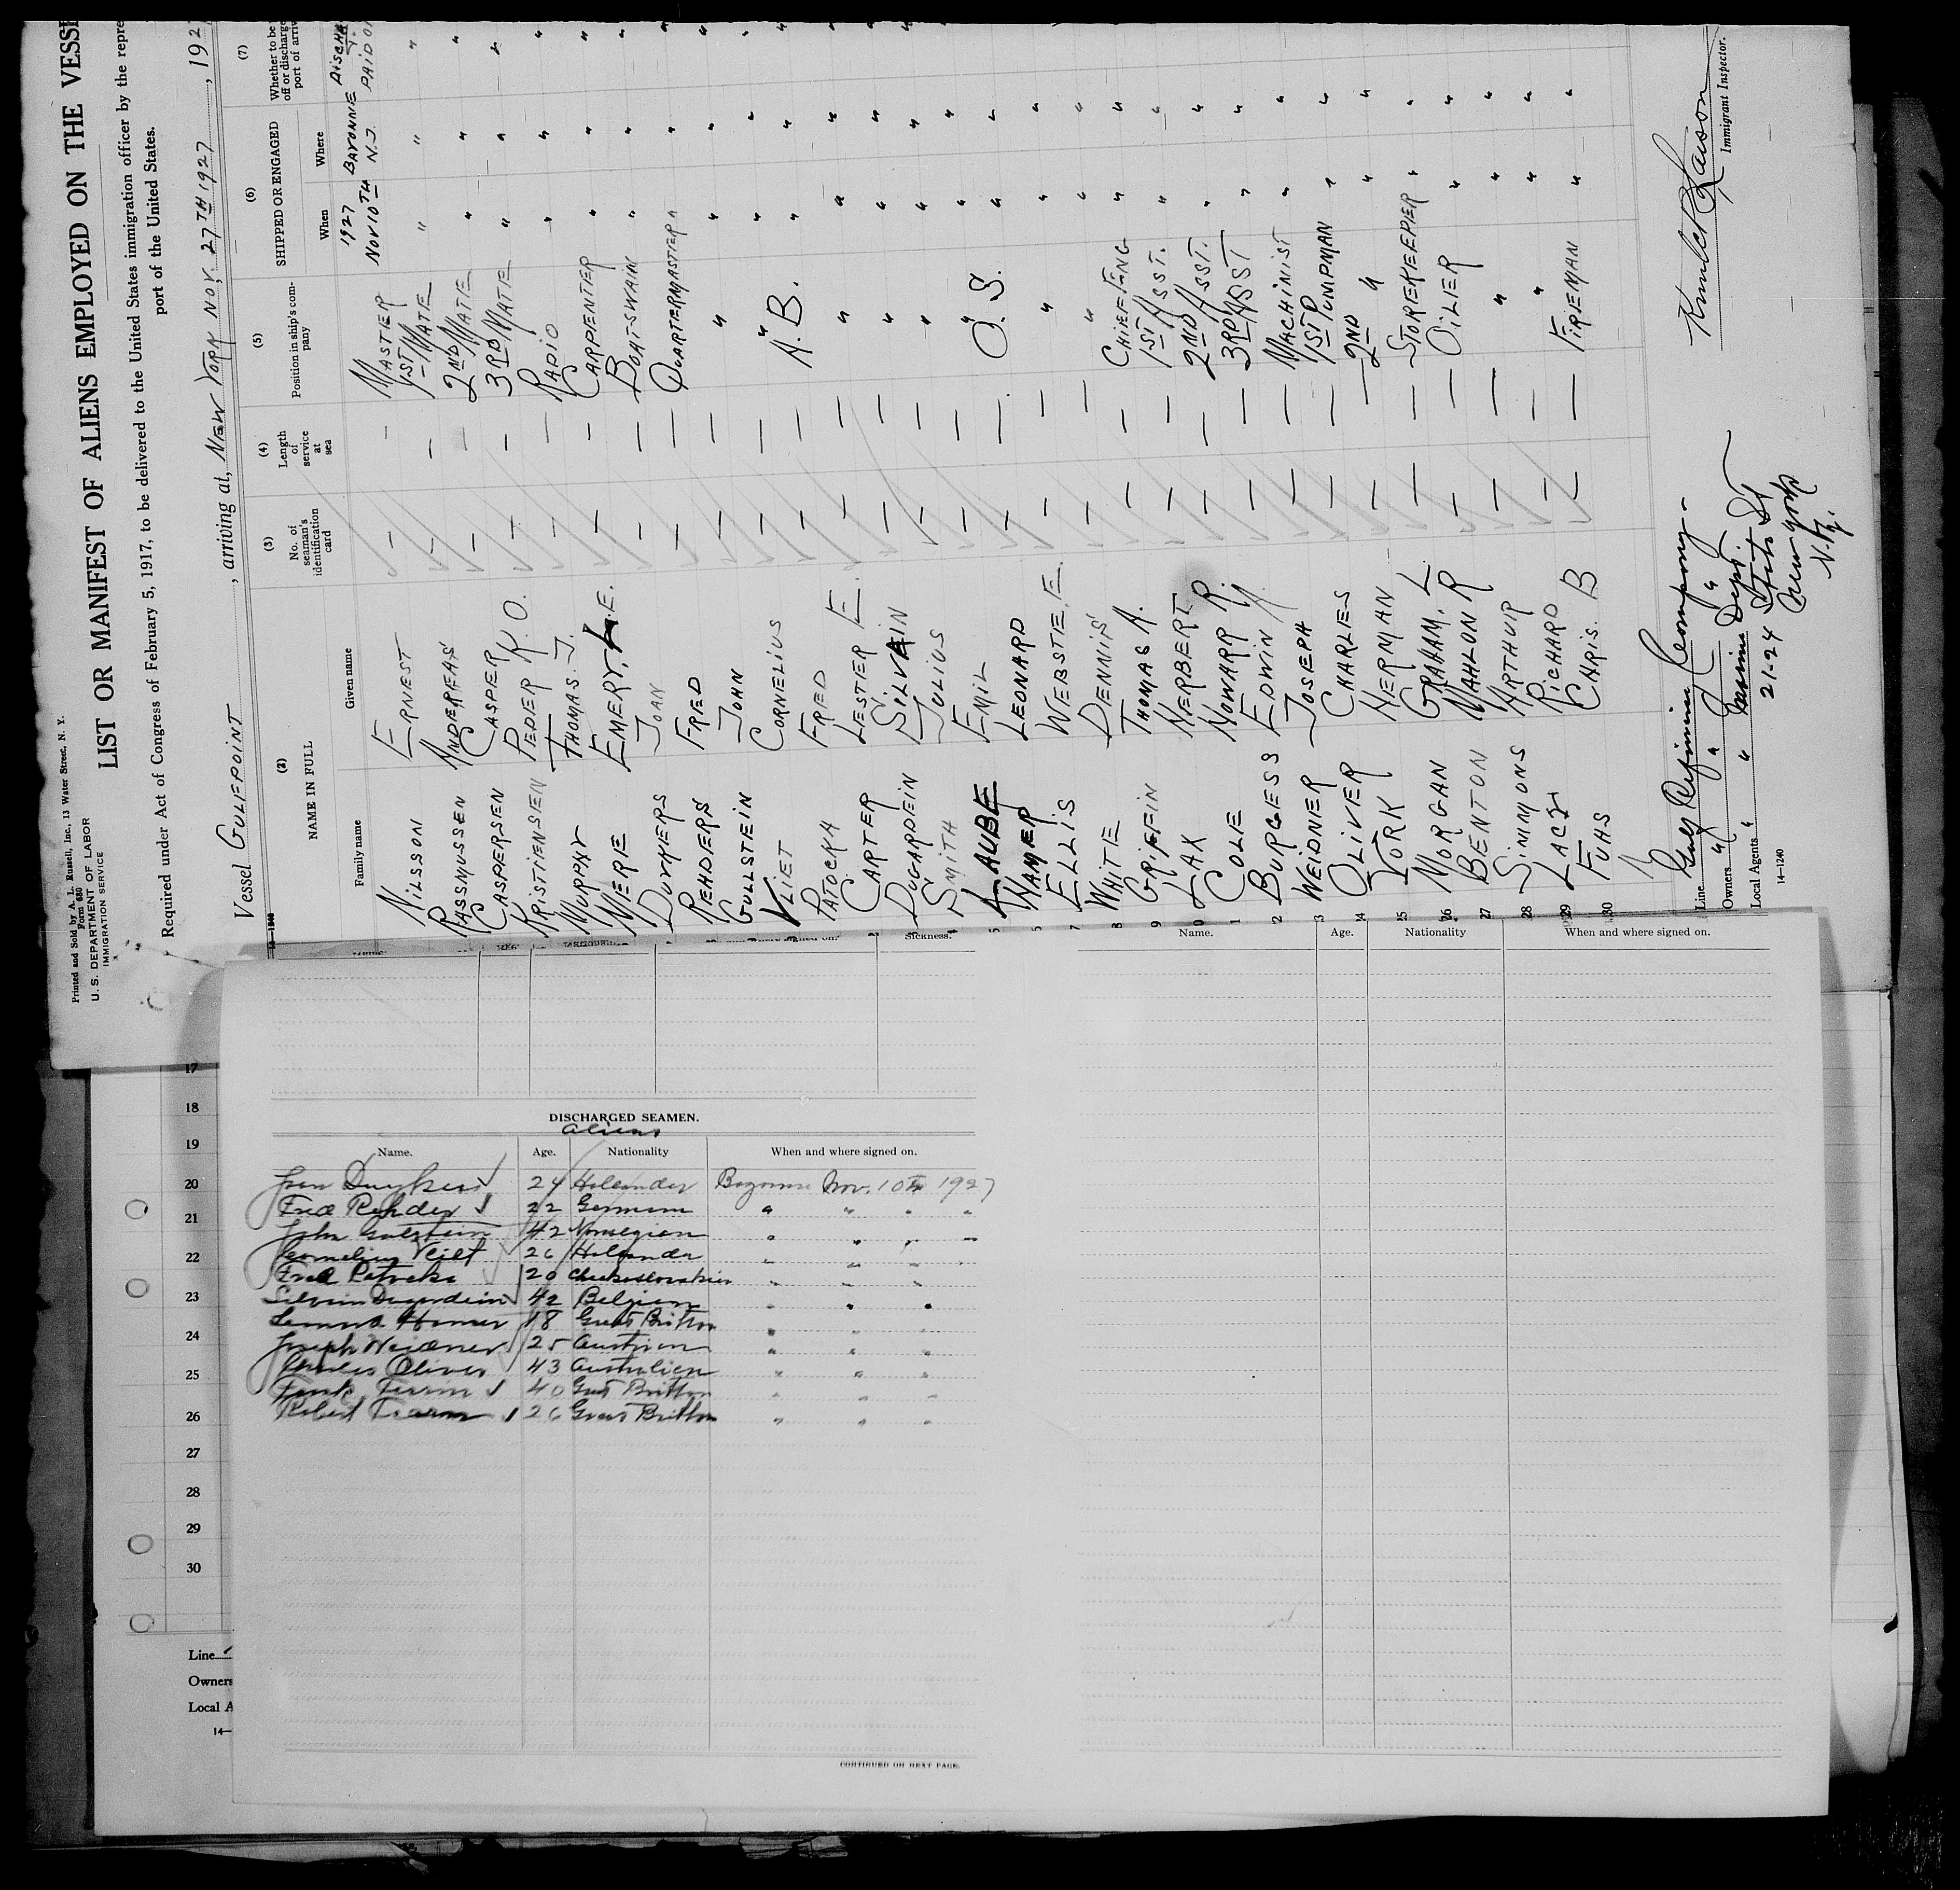 Printed and Sold by A. L. Russell, Inc., 13 Water Street, N. Y.
Form 680
U. S. DEPARTMENT OF LABOR
IMMIGRATION SERVICE
LIST OR MANIFEST OF ALIENS EMPLOYED ON THE VESSE
Required under Act of Congress of February 5, 1917, to be delivered to the United States immigration officer by the repre
port of the United States.
Vessel GULFPOINT, arriving at, NEW YORK NOV. 27TH 1927, 192
(2) (3) (4) (5) (6) (7)
NAME IN FULL
Family name Given name
No. of seaman's identification card
Length of service at sea
Position in ship's company
SHIPPED OR ENGAGED
When Where
Whether to be off or discharge port of arriv
NILSSON ERNEST — — MASTER 1927 NOV 10TH BAYONNE N.J. PAID O
RASMUSSEN ANDREAS — — 1ST MATE " " "
CASPERSEN CASPER — — 2ND MATE " " "
KRISTIENSEN PEDER K.O. — — 3RD MATE " " "
MURPHY THOMAS. J. — — RADIO " " "
MERIE EMERY. L.E. — — CARPENTER " " "
DUYKERS JOAN — — BOATSWAIN " " "
REHDERS FRED — — QUARTERMASTER " " "
GULLSTEIN JOHN — — " " " "
VLIET CORNELIUS — — " " " "
PATOCKA FRED — — A.B. " " "
CARTER LESTER E. — — " " " "
DUGARDEIN SILVAIN — — " " " "
SMITH JULIUS — — " " " "
LAUBE EMIL — — " " " "
HAMER LEONARD — — O.S. " " "
ELLIS WEBSTE. E. — — " " " "
WHITE DENNIS — — " " " "
GRIFFIN THOMAS A. — — CHIEF ENG " " "
LAX HERBERT — — 1ST ASST. " " "
COLE HOWARR R. — — 2ND ASST. " " "
BURGESS EDWIN A. — — 3RD ASST " " "
WEIDNER JOSEPH — — MACHINIST " " "
OLIVER CHARLES — — 1ST PUMPMAN " " "
YORK HERMAN — — 2ND " " " "
MORGAN GRAHAM. L — — STOREKEEPER " " "
BENTON MAHLON R — — OILER " " "
SIMMONS ARTHUR — — " " " "
LACY RICHARD — — " " " "
FUHS CHRIS. B — — FIREMAN " " "
30
Line Gulf Refining Company
Owners " " "
Local Agents " " Marine Dept.
21-24 State St
New York
N.Y.
14—1240
Immigrant Inspector.
Sickness.
Name. Age. Nationality When and where signed on.
DISCHARGED SEAMEN.
Aliens
Name. Age. Nationality When and where signed on.
Joan Duykers 24 Hollander Bayonne Nov. 10th 1927
Fred Rehder 22 German " " " "
John Gulstein 42 Norwegian " " " "
Cornelius Vlilt 26 Hollander " " " "
Fred Patocka 20 Checkoslovakian " " " "
Silvain Dugardein 42 Belgian " " "
Leonard Hamer 18 Great Britton " " "
Joseph Weidner 25 Austrian " " "
Charles Oliver 43 Australien " " "
Frank 40 Great Britton " " "
Robert 26 Great Britton " " "
17
18
19
20
21
22
23
24
25
26
27
28
29
30
Line
Owners
Local A
14—
CONTINUED ON NEXT PAGE.